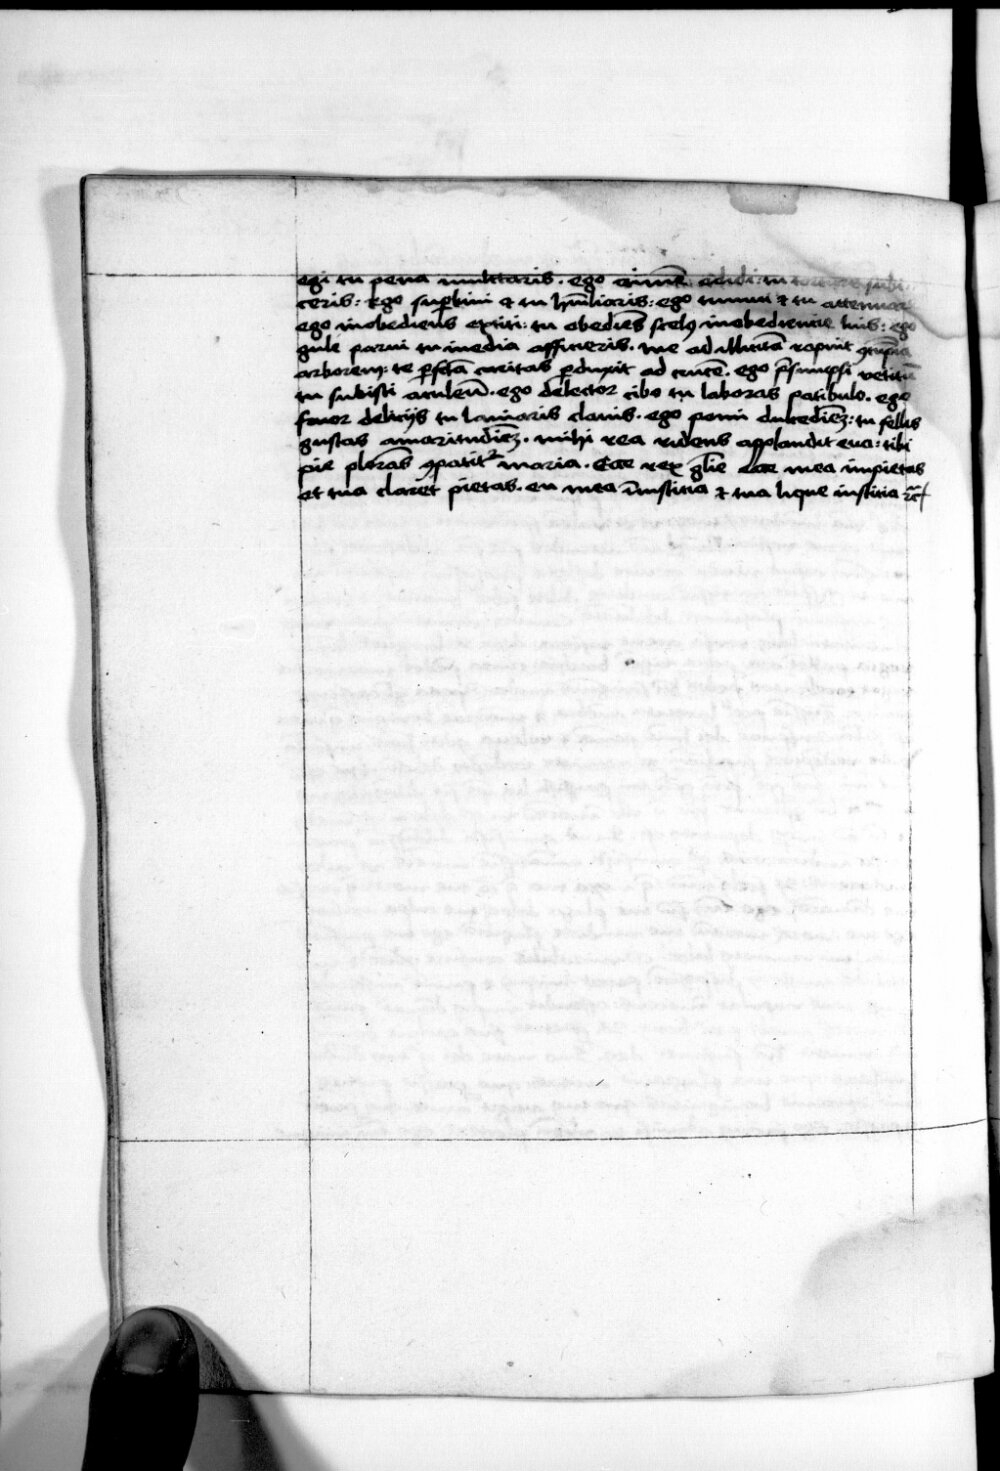 egi tu pena multtaris . ego crimē edidi : tu torture subi
ceris : Ego superbivi ⁊ tu hūiliaris : ego tumui ⁊ tu attenuaris
ego inobediens extiti : tu obediēs scelus inobediencie luis : ego
gule parui tu inedia afficeris . me ad illicitā rapuit ꝯcupīa
arborem : te ꝑfctā caritas ꝑduxit ad crucē . ego p̄sumpsi vetitū
tu subisti aculeū . ego delector cibo tu laboras patibulo . ego
fruor delicijs tu laniaris clavis . ego pomi dulcediēꝫ : tu fellis
gustas amaritudiēꝫ . mihi rea ridens applaudit eva : tibi
pie plorās ꝯpatitᷣ maria . Ecce rex glīe ecce mea impietas
et tua claret pietas . en mea īiustitia ⁊ tua liqueꝫ iustitia ⁊c̄